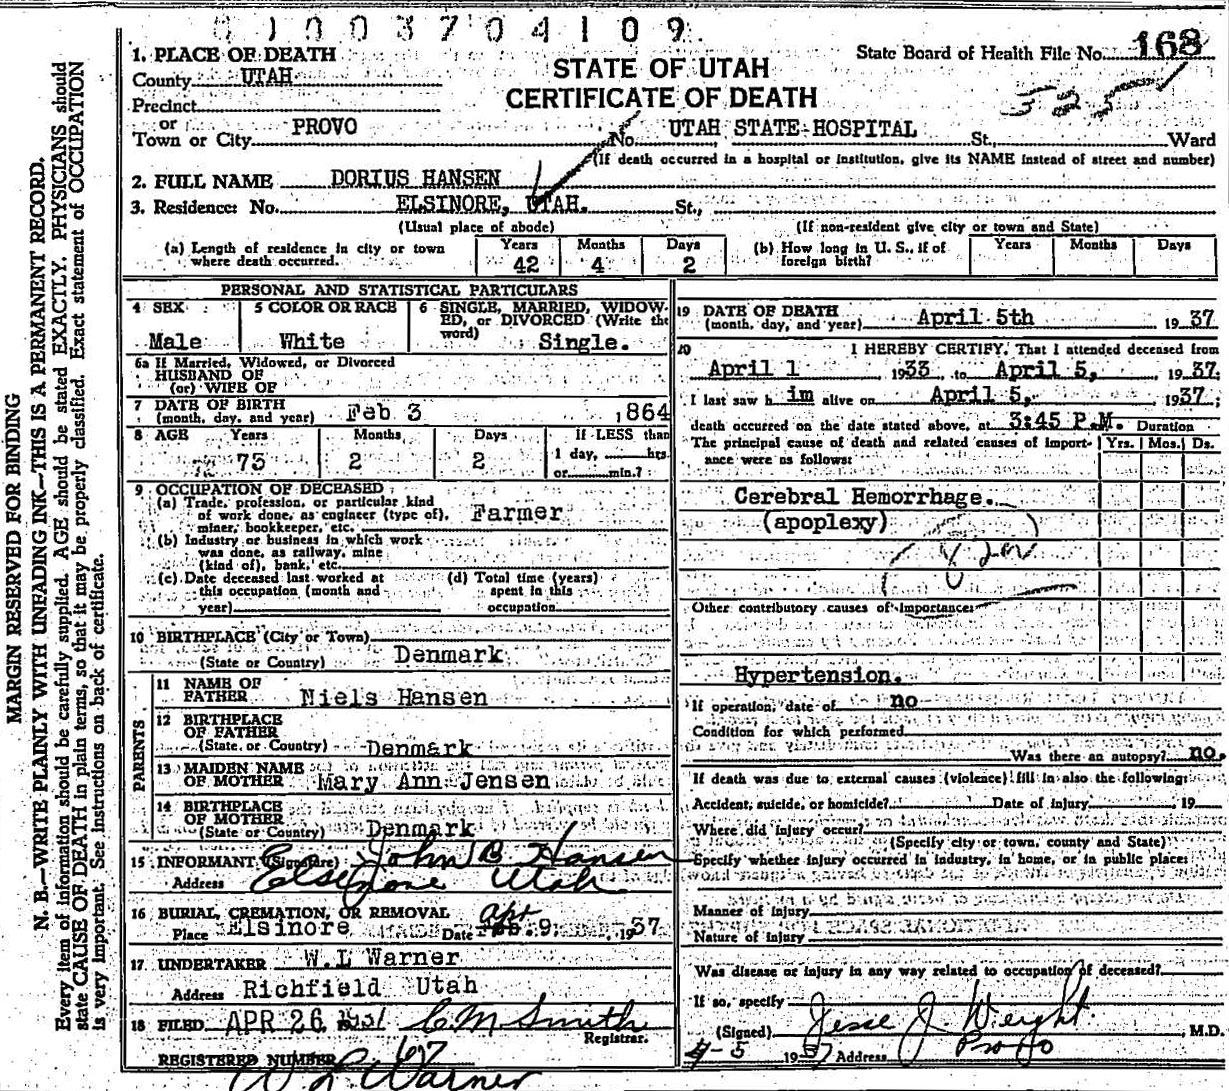 01003704109
MARGIN RESERVED FOR BINDING
N. B.—WRITE PLAINLY WITH UNFADING INK—THIS IS A PERMANENT RECORD.
Every item of information should be carefully supplied. AGE should be stated EXACTLY. PHYSICIANS should
state CAUSE OF DEATH in plain terms, so that it may be properly classified. Exact statement of OCCUPATION
is very important. See instructions on back of certificate.
State Board of Health File No. 168
325
STATE OF UTAH
CERTIFICATE OF DEATH
1. PLACE OF DEATH
County UTAH
Precinct
or
Town or City PROVO No. UTAH STATE HOSPITAL St., Ward
(If death occurred in a hospital or institution, give its NAME instead of street and number)
2. FULL NAME DORIUS HANSEN
3. Residence: No. ELSINORE, UTAH. St.,
(Usual place of abode) (If non-resident give city or town and State)
(a) Length of residence in city or town where death occurred. Years 42 Months 4 Days 2
(b) How long in U. S., if of foreign birth? Years Months Days
PERSONAL AND STATISTICAL PARTICULARS
4 SEX Male
5 COLOR OR RACE White
6 SINGLE, MARRIED, WIDOWED, or DIVORCED (Write the word) Single.
6a If Married, Widowed, or Divorced
HUSBAND OF
(or) WIFE OF
7 DATE OF BIRTH
(month, day, and year) Feb 3 1864
8 AGE Years 73 Months 2 Days 2
If LESS than
1 day, hrs.
or min.?
9 OCCUPATION OF DECEASED
(a) Trade, profession, or particular kind
of work done, as engineer (type of),
miner, bookkeeper, etc. Farmer
(b) Industry or business in which work
was done, as railway, mine
(kind of), bank, etc.
(c) Date deceased last worked at
this occupation (month and
year)
(d) Total time (years)
spent in this
occupation
10 BIRTHPLACE (City or Town)
(State or Country) Denmark
PARENTS
11 NAME OF
FATHER Niels Hansen
12 BIRTHPLACE
OF FATHER
(State or Country) Denmark
13 MAIDEN NAME
OF MOTHER Mary Ann Jensen
14 BIRTHPLACE
OF MOTHER
(State or Country) Denmark
15 INFORMANT (Signature) John B Hansen
Address Elsinore Utah
16 BURIAL, CREMATION, OR REMOVAL
Place Elsinore Date Apr 9, 1937
17 UNDERTAKER W.L Warner
Address Richfield Utah
18 FILED APR 26 1937 C M Smith
Registrar.
REGISTERED NUMBER 167
W L Warner
19 DATE OF DEATH
(month, day, and year) April 5th 1937
20 I HEREBY CERTIFY, That I attended deceased from
April 1 1933 to April 5, 1937
I last saw him alive on April 5, 1937
death occurred on the date stated above, at 3:45 P.M. Duration
The principal cause of death and related causes of importance were as follows: Yrs. Mos. Ds.
Cerebral Hemorrhage.
(apoplexy)
Other contributory causes of importance:
Hypertension.
If operation, date of no
Condition for which performed
Was there an autopsy? no.
If death was due to external causes (violence) fill in also the following:
Accident, suicide, or homicide? Date of injury 19
Where did injury occur?
(Specify city or town, county and State)
Specify whether injury occurred in industry, in home, or in public place:
Manner of injury
Nature of injury
Was disease or injury in any way related to occupation of deceased?
If so, specify
(Signed) Jesse J Weight M.D.
4-5 1937 Address Provo